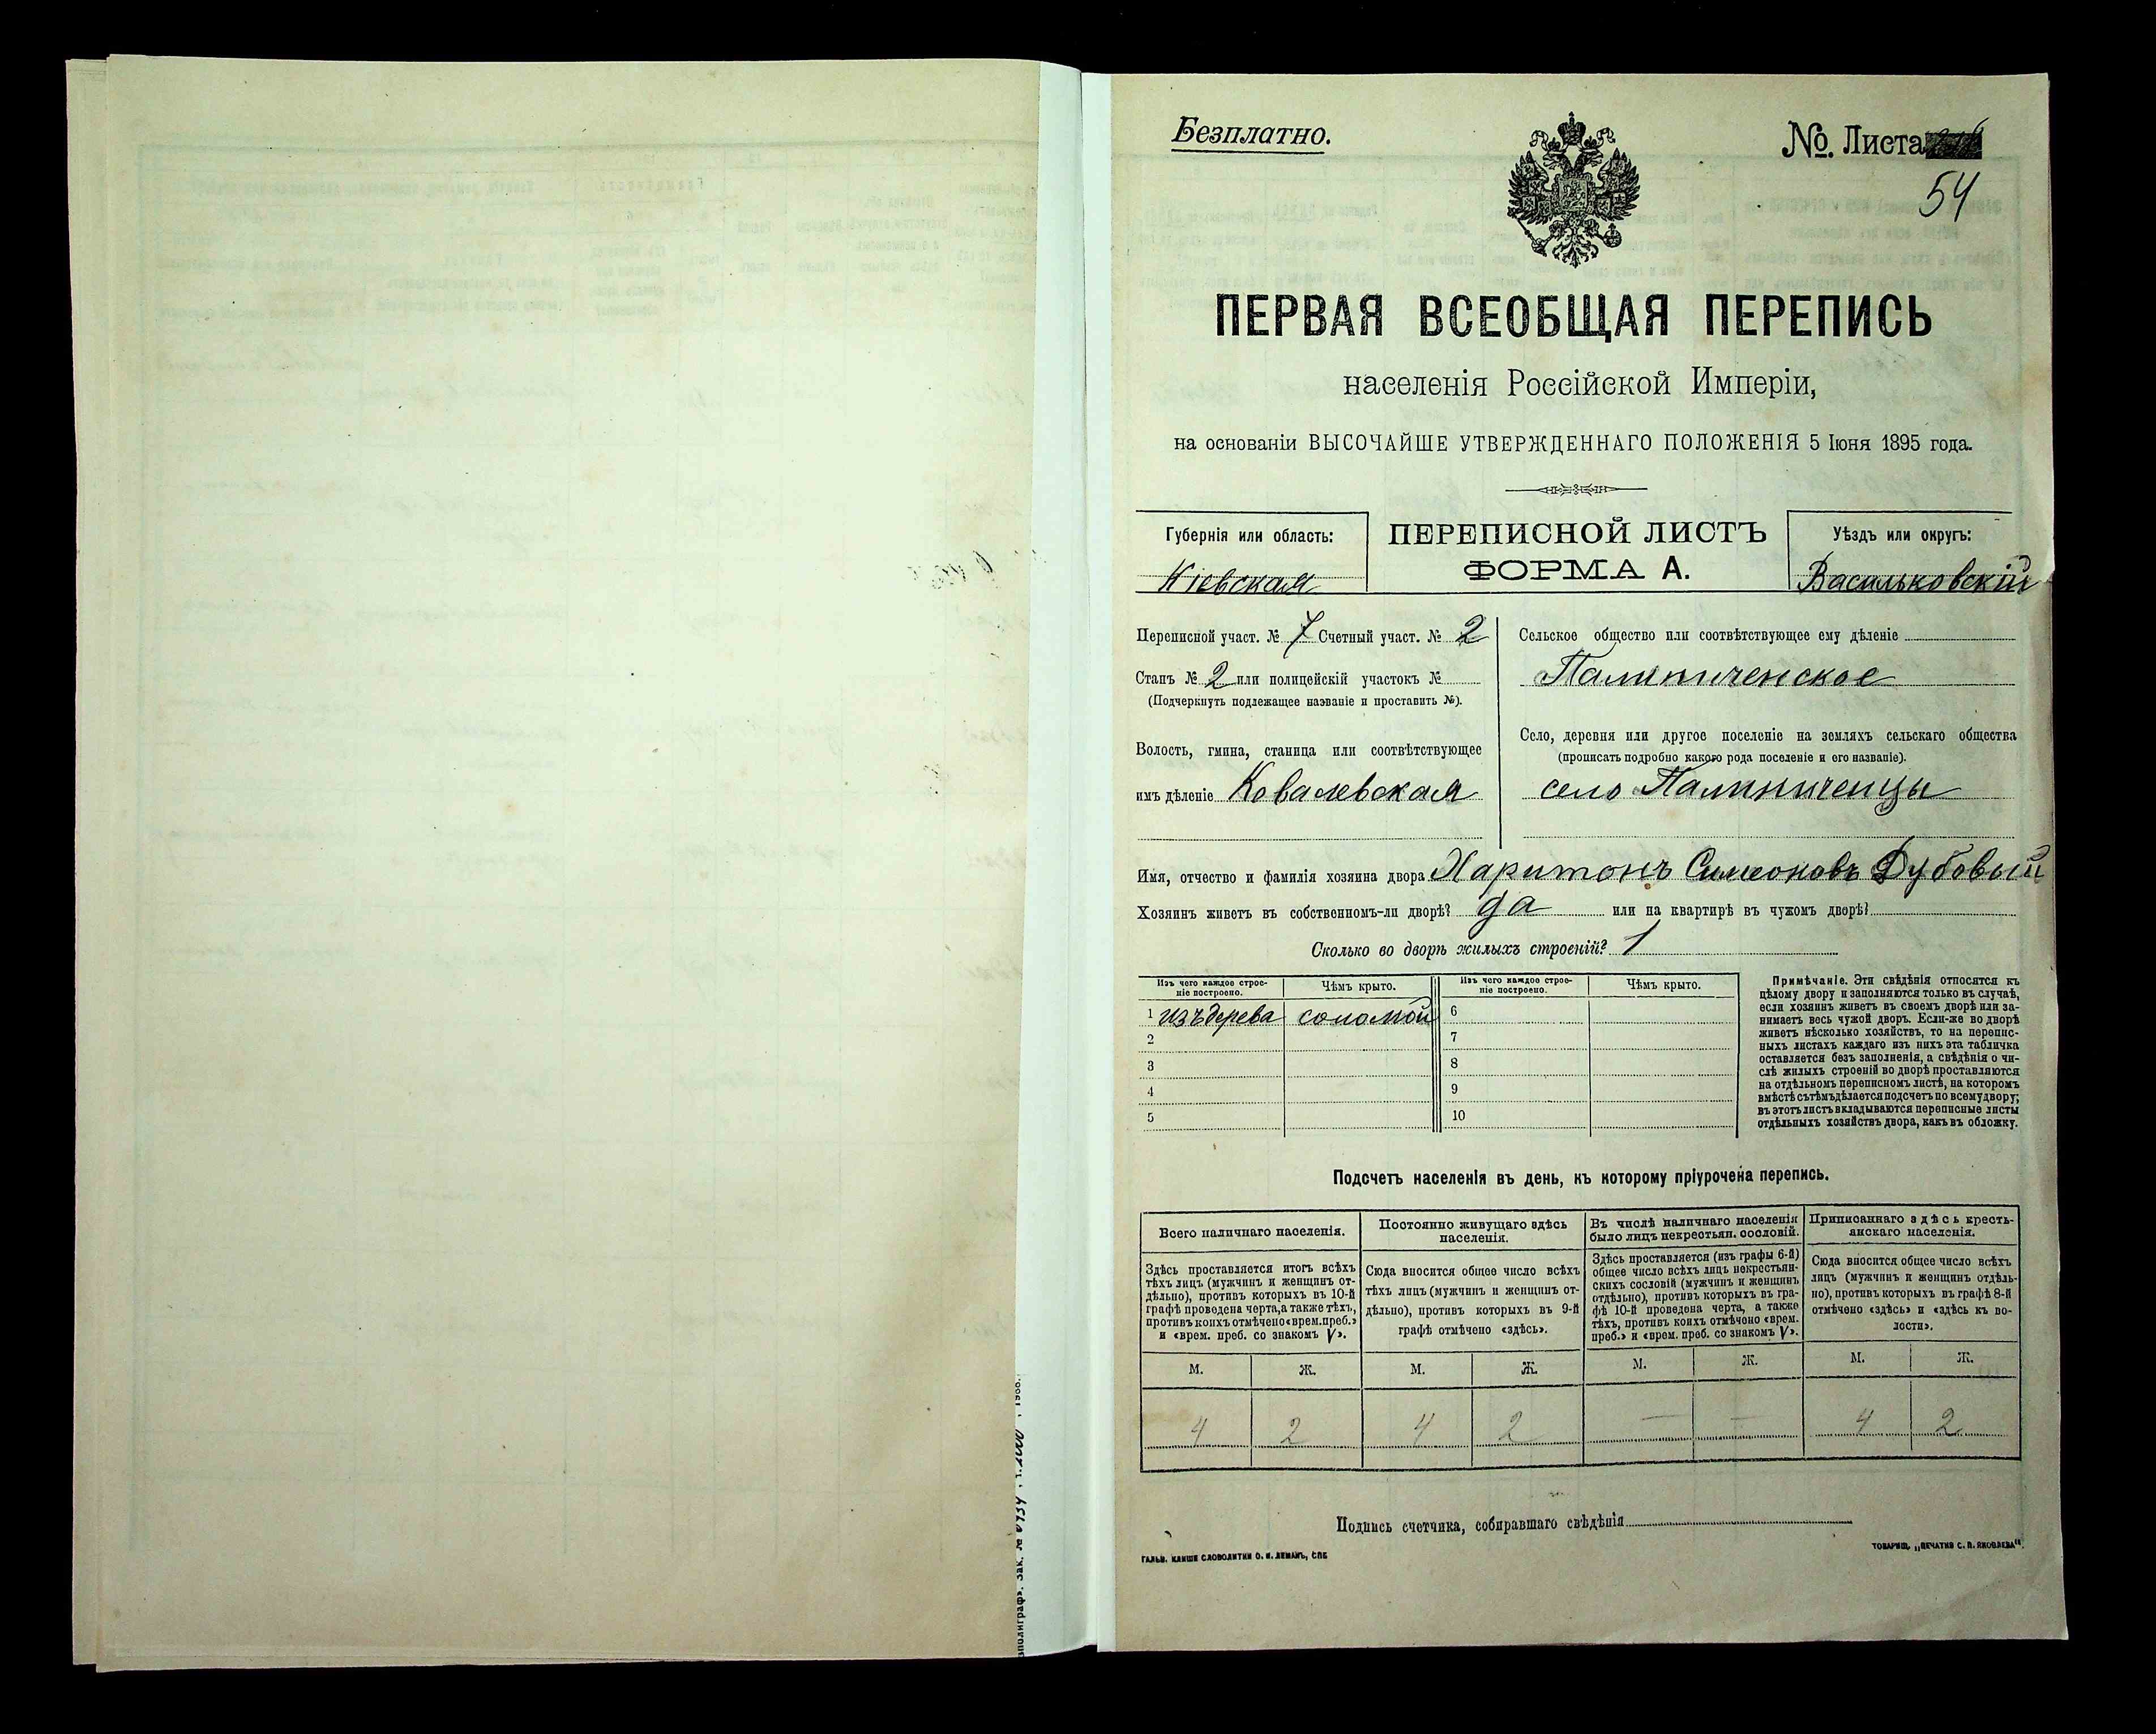 Безплатно.
№. Листа
54
ПЕРВАЯ ВСЕОБЩАЯ ПЕРЕПИСЬ
населенія Россійской Имперіи,
на основаніи ВЫСОЧАЙШЕ УТВЕРЖДЕННАГО ПОЛОЖЕНІЯ 5 Іюня 1895 года.
Губернія или область:
Кіевская
ПЕРЕПИСНОЙ ЛИСТЪ
ФОРМА А.
Уѣздъ или округъ:
Васильковскій
Переписной участ. № 7 Счетный участ. № 2
Станъ № 2 или полицейскій участокъ №
(Подчеркнуть подлежащее названіе и проставить №).
Волость, гмина, станица или соотвѣтствующее
имъ дѣленіе Ковалевская
Сельское общество или соотвѣтствующее ему дѣленіе
Село, деревня или другое поселеніе на земляхъ сельскаго общества
(прописать подробно какого рода поселеніе и его названіе).
село
Имя, отчество и фамилія хозяина двора Харитонъ Симеоновъ Дубовый
Хозяинъ живетъ въ собственномъ-ли дворѣ? да или на квартирѣ въ чужомъ дворѣ?
Сколько во дворѣ жилыхъ строеній? 1
Изъ чего каждое строе-
ніе построено.
Чѣмъ крыто.
Изъ чего каждое строе-
ніе построено.
Чѣмъ крыто.
1 изъ дерева соломой 6
2 7
3 8
4 9
5 10
Примѣчаніе. Эти свѣдѣнія относятся къ
цѣлому двору и заполняются только въ случаѣ,
если хозяинъ живетъ въ своемъ дворѣ или за-
нимаетъ весь чужой дворъ. Если-же во дворѣ
живетъ нѣсколько хозяйствъ, то на перепис-
ныхъ листахъ каждаго изъ нихъ эта табличка
оставляется безъ заполненія, а свѣдѣнія о чи-
слѣ жилыхъ строеній во дворѣ проставляются
на отдѣльномъ переписномъ листѣ, на которомъ
вмѣстѣ съ тѣмъ дѣлается подсчетъ по всему двору;
въ этотъ листъ вкладываются переписные листы
отдѣльныхъ хозяйствъ двора, какъ въ обложку.
Подсчетъ населенія въ день, къ которому пріурочена перепись.
Всего наличнаго населенія.
Здѣсь проставляется итогъ всѣхъ
тѣхъ лицъ (мужчинъ и женщинъ от-
дѣльно), противъ которыхъ въ 10-й
графѣ проведена черта, а также тѣхъ,
противъ коихъ отмѣчено «врем. преб.»
и «врем. преб. со знакомъ V».
Постоянно живущаго здѣсь
населенія.
Сюда вносится общее число всѣхъ
тѣхъ лицъ (мужчинъ и женщинъ от-
дѣльно), противъ которыхъ въ 9-й
графѣ отмѣчено «здѣсь».
Въ числѣ наличнаго населенія
было лицъ некрестьян. сословій.
Здѣсь проставляется (изъ графы 6-й)
общее число всѣхъ лицъ некрестьян-
скихъ сословій (мужчинъ и женщинъ
отдѣльно), противъ которыхъ въ гра-
фѣ 10-й проведена черта, а также
тѣхъ, противъ коихъ отмѣчено «врем.
преб.» и «врем. преб. со знакомъ V».
Приписаннаго здѣсь кресть-
янскаго населенія.
Сюда вносится общее число всѣхъ
лицъ (мужчинъ и женщинъ отдѣль-
но), противъ которыхъ въ графѣ 8-й
отмѣчено «здѣсь» и «здѣсь въ во-
лости».
М. Ж. М. Ж. М. Ж. М. Ж.
4 2 4 2 — — 4 2
Подпись счетчика, собиравшаго свѣдѣнія
ГАЛЬВ. КЛИШЕ СЛОВОЛИТНИ О. И. ЛЕМАНЪ, СПБ
ТОВАРИЩ. „ПЕЧАТНЯ С. П. ЯКОВЛЕВА“.